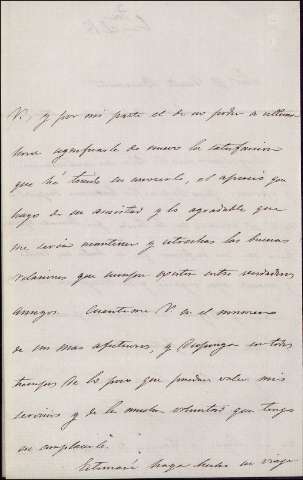 V., y por mi parte el de no poder a ultima
hora significarle de nuevo la satisfaccion
que há tenido en conocerle, el aprecio que
hago de su amistad y lo agradable que
me seria mantener y estrechar las buenas
relaciones que siempre existen entre verdaderos
amigos. Cuenteme V. en el numero
de sus mas afectuosos, y disponga en todos
tiempos de lo poco que puedan valer mis
servicios y de la mucha voluntad que tengo
en complacerle.
Estimaré haga dicho su viaje